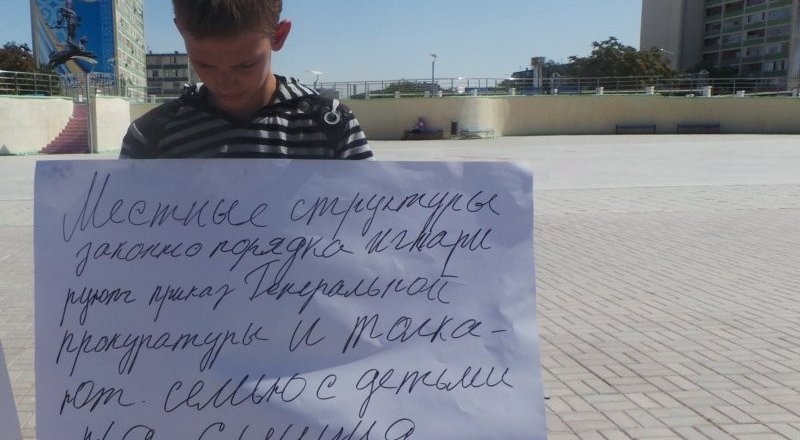 Местные структуры
законно порядка игнари
руют приказ Генеральной
прокуратуры и толка-
ют. семью с детьми
на